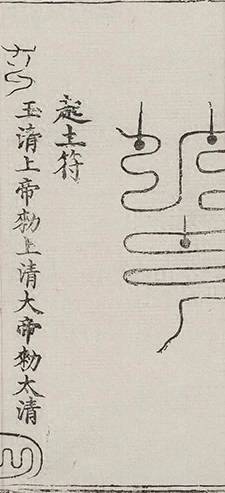 起土符
玉清上帝勅上清大帝勅太清